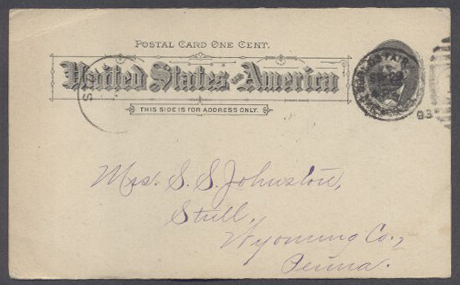 POSTAL CARD ONE CENT.
United States of America
THIS SIDE IS FOR ADDRESS ONLY.
93
Mrs. S. S. Johnston,
Stull,
Wyoming Co.,
Penna.